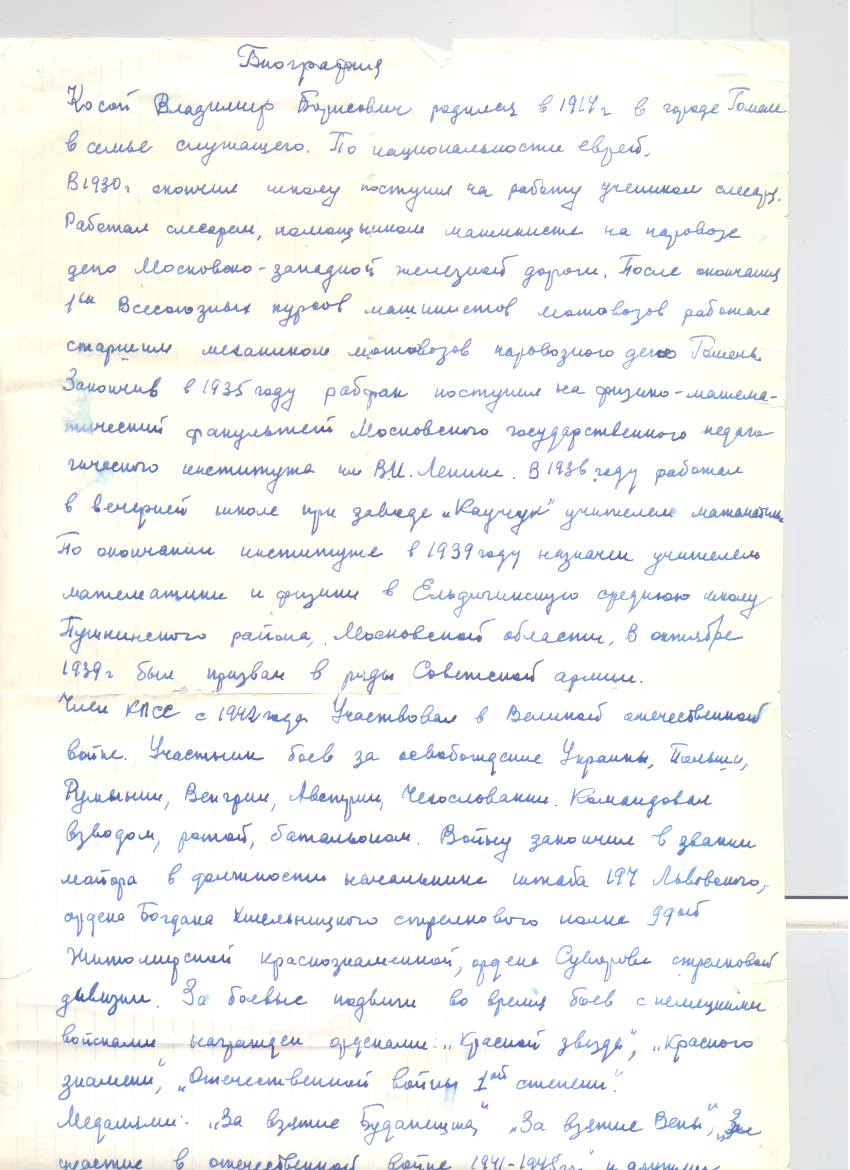 Биография
Косой Владимир Борисович родился в 1914 г в городе Гомеле
в семье служащего. По национальности еврей.
В 1930г окончил школу поступил на работу учеником слесаря.
Работал слесарем, помощником машиниста на паровозе
депо Московско-западной железной дороги. После окончания
1ых Всесоюзных курсов машинистов мотовозов работал
старшим механиком мотовозов паровозного депо Гомель.
Закончив в 1935 году рабфак поступил на физико-матема-
тический факультет Московского государственного педаго
гического института им В.И. Ленина. В 1936 году работал
в вечерней школе при заводе „Каучук" учителем математики
По окончании института в 1939 году назначен учителем
математики и физики в Ельдигинскую среднюю школу
Пушкинского района, Московской области. В октябре
1939 г был призван в ряды Советской армии.
Член КПСС с 1942 года Участвовал в Великой отечественной
войне. Участник боев за освобождение Украины, Польши,
Румынии, Венгрии, Австрии, Чехословакии. Командовал
взводом, ротой, батальоном. Войну закончил в звании
майора в должности начальника штаба 197 Львовского,
ордена Богдана Хмельницкого стрелкового полка 99ой
Житомирской краснознаменной, ордена Суворова стрелковой
дивизии. За боевые подвиги во время боев с немецкими
войсками награжден орденами: „Красной звезды", „Красного
знамени", „Отечественной войны 1ой степени".
Медалями: „За взятие Будапешта" „За взятие Вены", „За
участие в отечественной войне 1941-1945гг" и другими